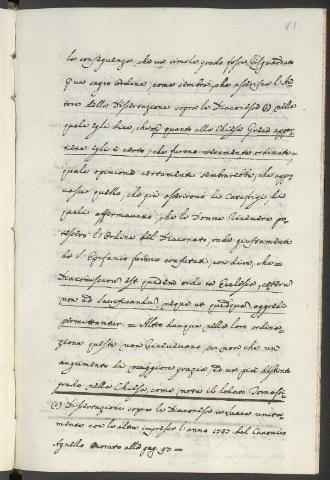 VI
la conseguenza, che un simile grado fosse riguardato
qual sagro ordine, come sembra, che asserisca l'Au
tore della Dissertazione sopra le Diaconesse (1) nella
quale egli dice, che quanto alla Chiesa Greca appar
tiene egli è certo, che furono veramente ordinate =
quale opinione certamente sembrarebbe, che appog
giasse quello, che già asserirono li Catafrigi, li
quali affermavano, che le Donne ricevere po
tessero l'Ordine del Diaconato, onde giustamente
da S. Epifanio furono confutati, con dire, che =
Diaconissarum est quidem ordo in Ecclesia, caeterum
non ad Sacrificandum, neque ut quidquam aggredi
permittantur = Altro dunque nella loro ordina
zione queste non ricevevano se non che un
augumento di maggiore grazia, ed un più distinto
grado nella Chiesa, come nota il lodato Tomassi
(1) Dissertazione sopra le Diaconesse unita
mente con le altre impressa l'anno 1787 dal Canonico
Agnello Onorato alla pag. 97 =